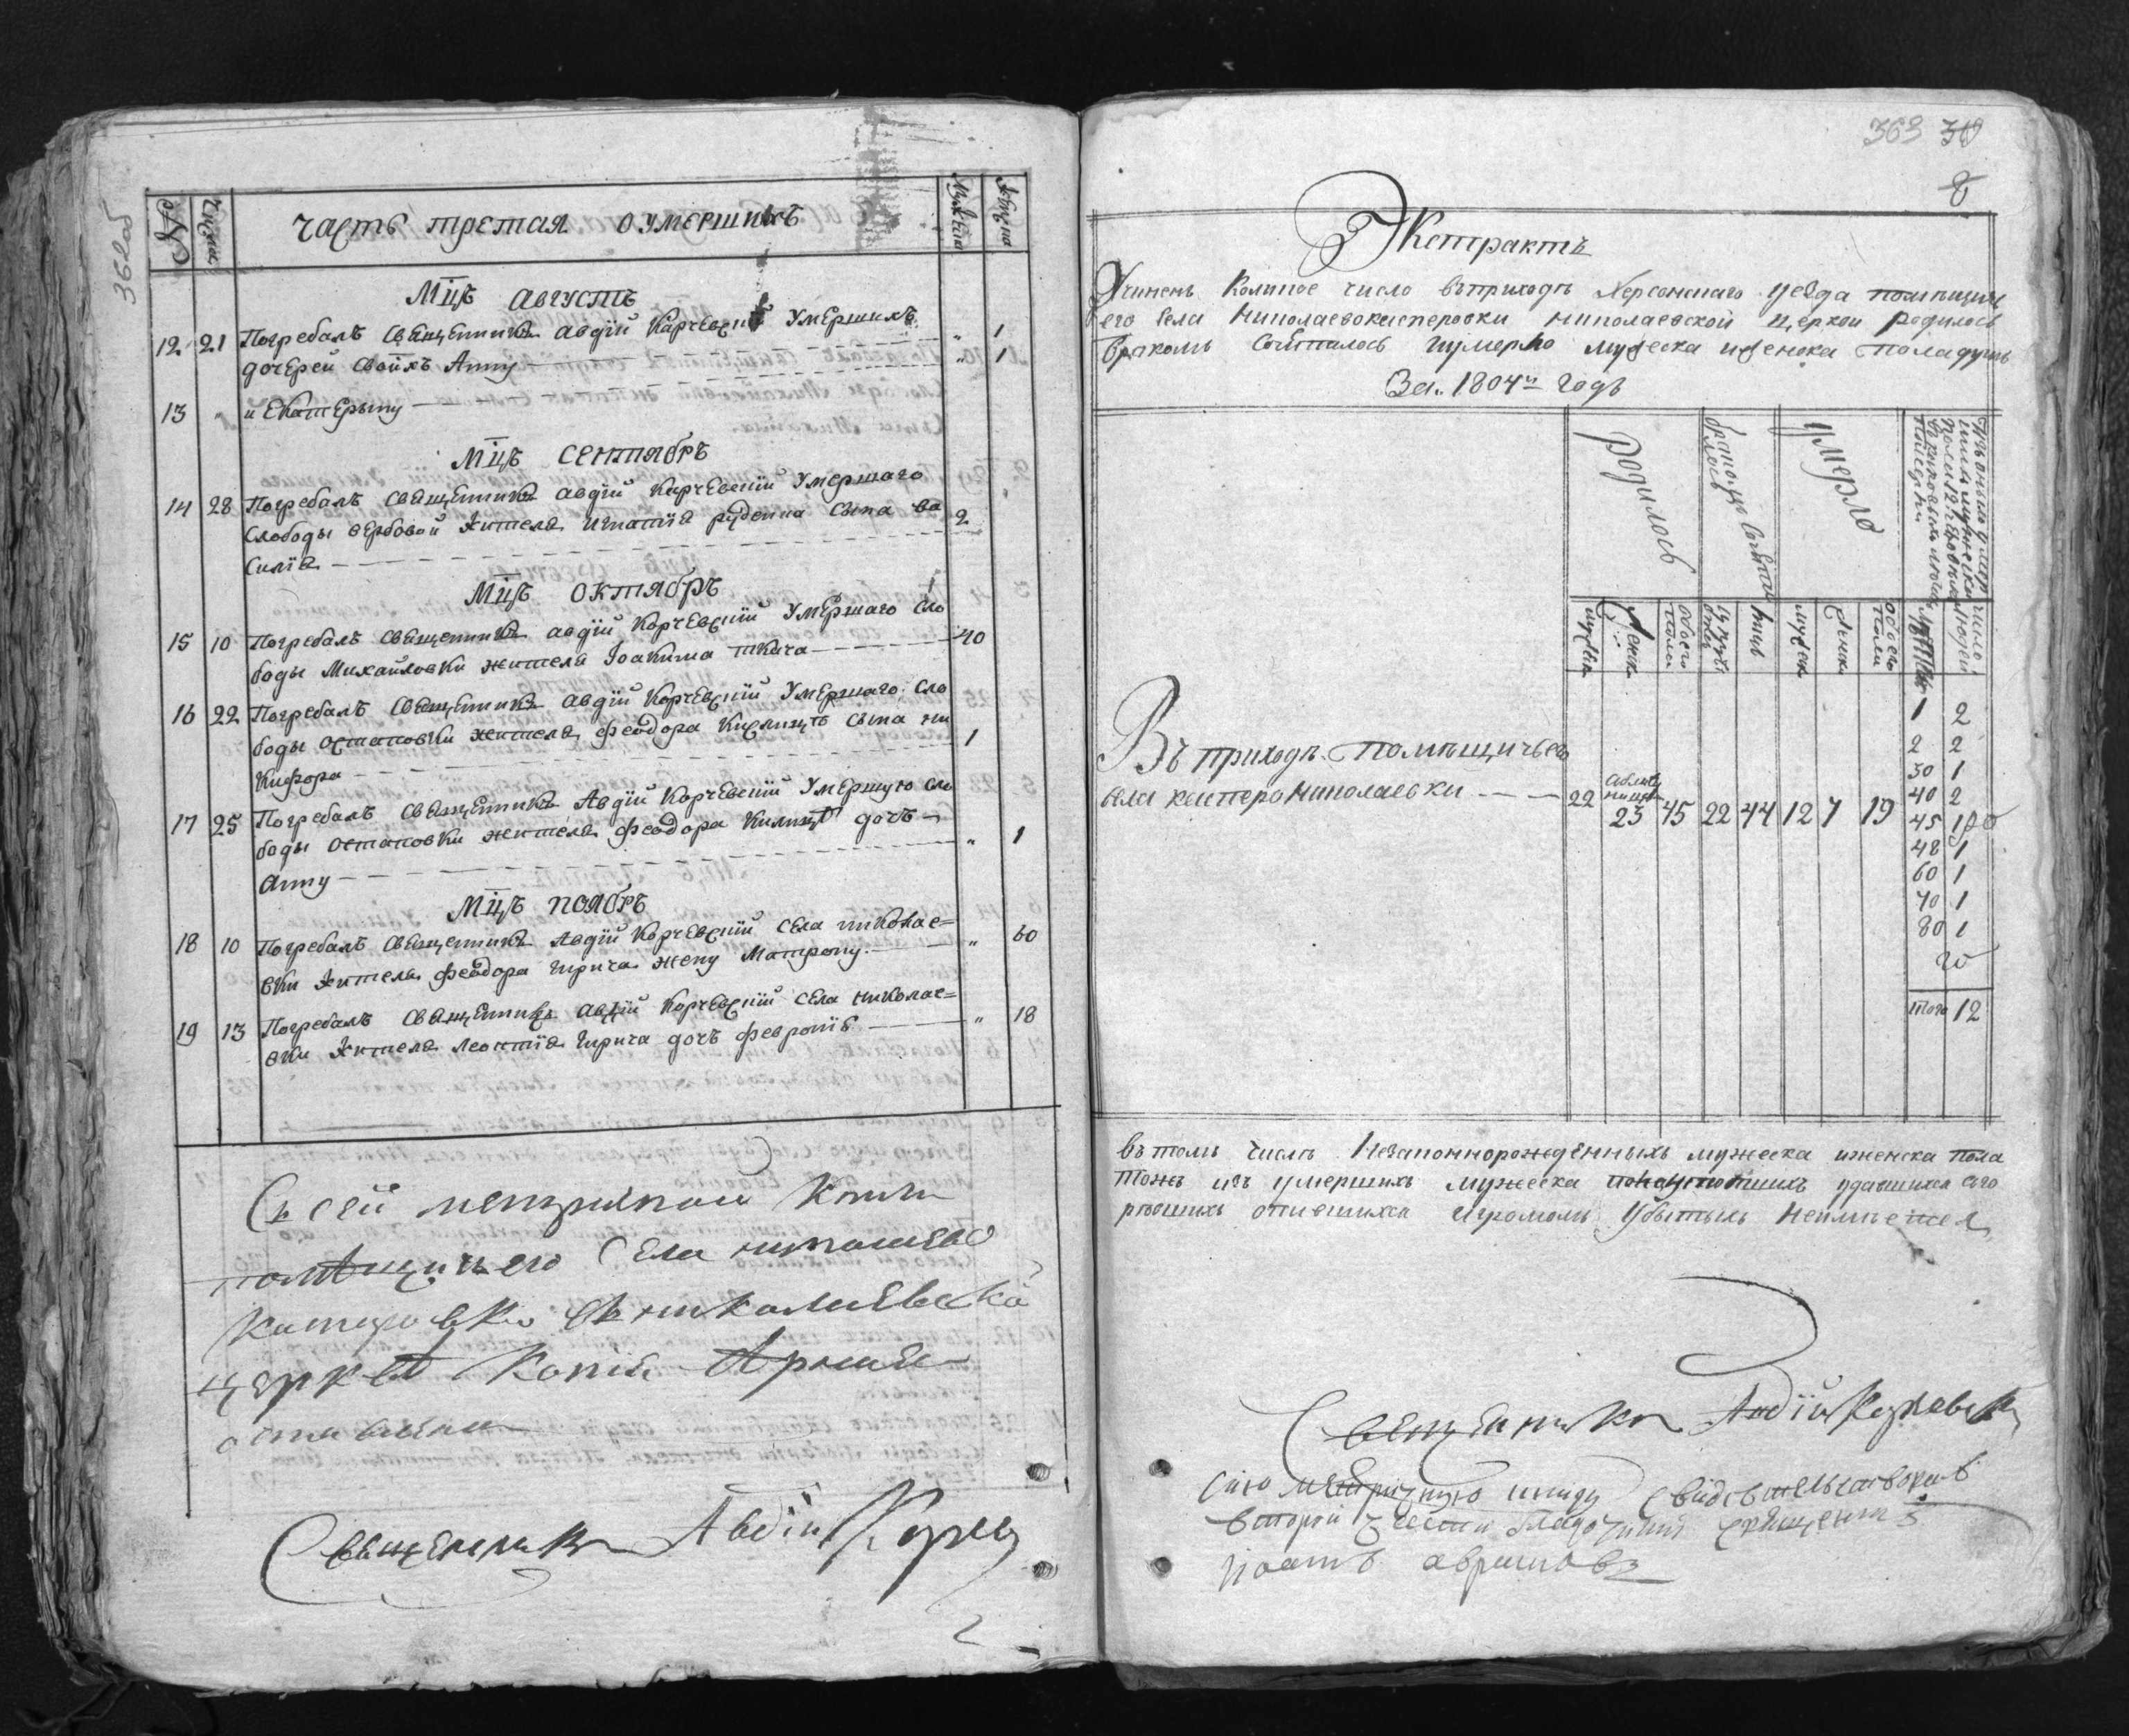 362об
№ Число Часть третая о умершихъ Мужеска Женска
Мцъ августъ
12. 21 Погребалъ священникъ авдiй Корчевскiй умершихъ
дочерей своихъ Анну 1
13 и Екатерыну 1
Мцъ сентябръ
14 28 Погребалъ священникъ авдiй Корчевскiй умершаго
слободы вербовой жителя игнатiя руденка сына ва
силiя 2
Мцъ октябръ
15 10 Погребалъ священникъ авдiй Корчевскiй умершаго сло
боды Михайловки жителя Iоакима ткача 40
16 22 Погребалъ священникъ авдiй Корчевскiй умершаго сло
боды остаповки жителя феодора сына ни
кифора 1
17 25 Погребалъ священникъ Авдiй Корчевскiй умершую сло
боды остаповки жителя феодора дочъ
анну 1
Мцъ ноябръ
18 10 Погребалъ священникъ Авдiй Корчевскiй села николае=
вки жителя феодора жену Матрону 60
19 13 Погребалъ священникъ авдiй Корчевскiй села николае=
вки жителя леонтiя дочъ февронiю 18
Съ сей
помѣщичъего села
церкви копiя
оставлена
Священникъ Авдiй Корчев
363 30
8
Экстрактъ
Учиненъ Коликое число въ приходѣ Херсонскаго уезда помѣщичъ
его села николаевокасперовки николаевской церкви родилось
бракомъ сочеталось иумерло мужеска иженска пола душъ
За 1804й годъ
родилось бракомъ сочеталось умерло
мужеска женска обоего пола мужеска женска обоего пола число людей
Въ приходѣ помѣщичъего
села касперо николаевки 22 23 45 22 44 12 7 19
1 2
2 2
30 1
40 2
45 1
48 1
60 1
70 1
80 1
итого 12
въ томъ числѣ незаконнорожденныхъ мужеска иженска пола
тожъ изъ умершихъ мужеска удавшихся
опившихся игромомъ убытыхъ неимѣется
Священникъ Авдiй Корчевскiй
сию метрическую книгу свидетельствовалъ
второй части священникъ